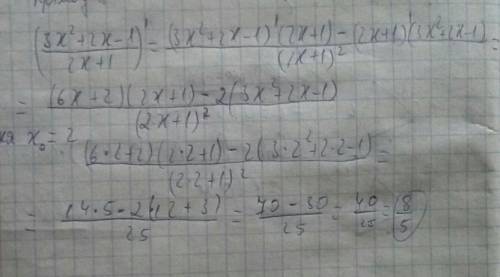 (3x²+2x-1 / 2x+1)' = (3x²+2x-1)'(2x+1)-(2x+1)'(3x²+2x-1) / (2x+1)² =
= (6x+2)(2x+1)-2(3x²+2x-1) / (2·x+1)²
x₀=2
(6·2+2)(2·2+1)-2(3·2²+2·2-1) / (2·2+1)² =
= 14·5-2(12+3) / 25 = 70-30 / 25 = 40 / 25 = 8 / 5